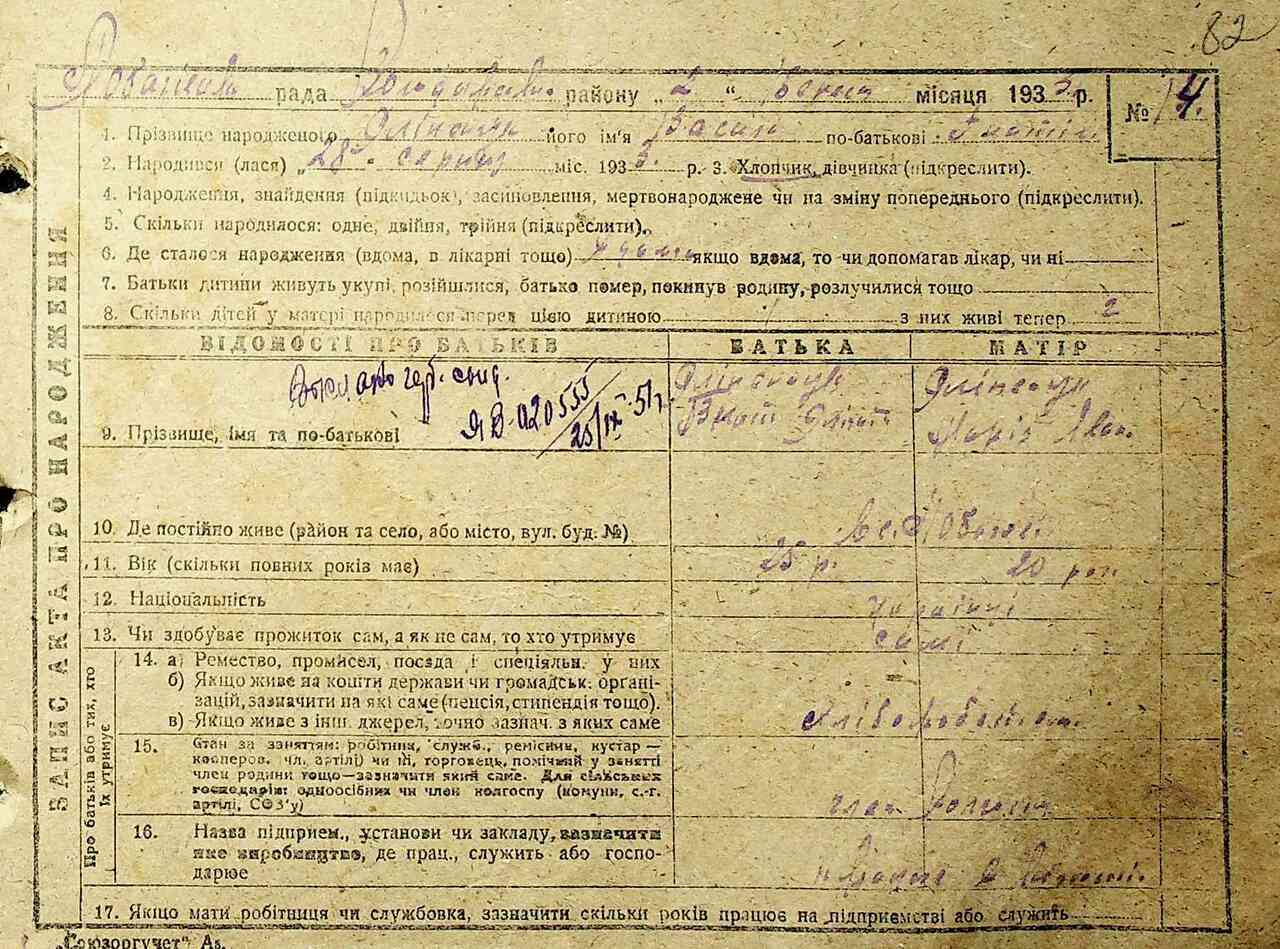 82
рада району „2 “ місяця 1933 р. № 14.
1. Прізвище народженого його ім'я Васил по-батькові
2. Народився (лася) „28 “ серпня міс. 1933. р. 3. Хлопчик, дівчинка (підкреслити).
4. Народження, знайдення (підкидьок), засиновлення, мертвонароджене чи на зміну попереднього (підкреслити).
5. Скільки народилося: одне, двійня, трійня (підкреслити).
6. Де сталося народження (вдома, в лікарні тощо) вдома якщо вдома, то чи допомагав лікар, чи ні
7. Батьки дитини живуть укупі, розійшлися, батько помер, покинув родину, розлучилися тощо
8. Скільки дітей у матері народилося перед цією дитиною з них живі тепер 2
ЗАПИС АКТА ПРО НАРОДЖЕННЯ
ВІДОМОСТІ ПРО БАТЬКІВ БАТЬКА МАТІР
ЯВ-020555
25/IX-51г.
9. Прізвище, імя та по-батькові Марія Іван.
10. Де постійно живе (район та село, або місто, вул. буд. №)
11. Вік (скільки повних років має) 25 р. 20 рок
12. Національність українці
13. Чи здобуває прожиток сам, а як не сам, то хто утримує самі
Про батьків або тих, хто їх утримує
14. а) Ремество, промисел, посада і спеціяльн. у них
б) Якщо живе на кошти держави чи громадськ. органі-
зацій, зазначити на які саме (пенсія, стипендія тощо).
в) Якщо живе з інш. джерел, точно зазнач. з яких саме
15. Стан за заняттям: робітник, служб., ремісник, кустар —
кооперов. чл. артілі) чи ні, торговець, помічний у занятті
член родини тощо—зазначити який саме. Для сільських
господарів: одноосібних чи член колгоспу (комуни, с.-г.
артілі, СОЗ'у) член
16. Назва підприєм., установи чи закладу, зазначити
яке виробництво, де прац., служить або госпо-
дарює
17. Якщо мати робітниця чи службовка, зазначити скільки років працює на підприємстві або служить
„Союзоргучет“